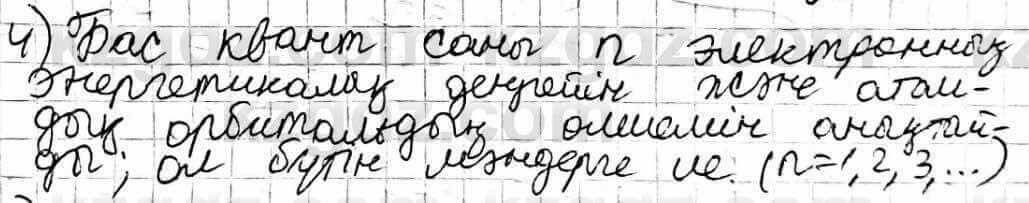 4) Бас квант саны n электронның
энергетикалық деңгейін және атом-
дық орбитальдың өлшемін анықтай-
ды; ол бүтін мәндерге ие. (n=1,2,3,...)